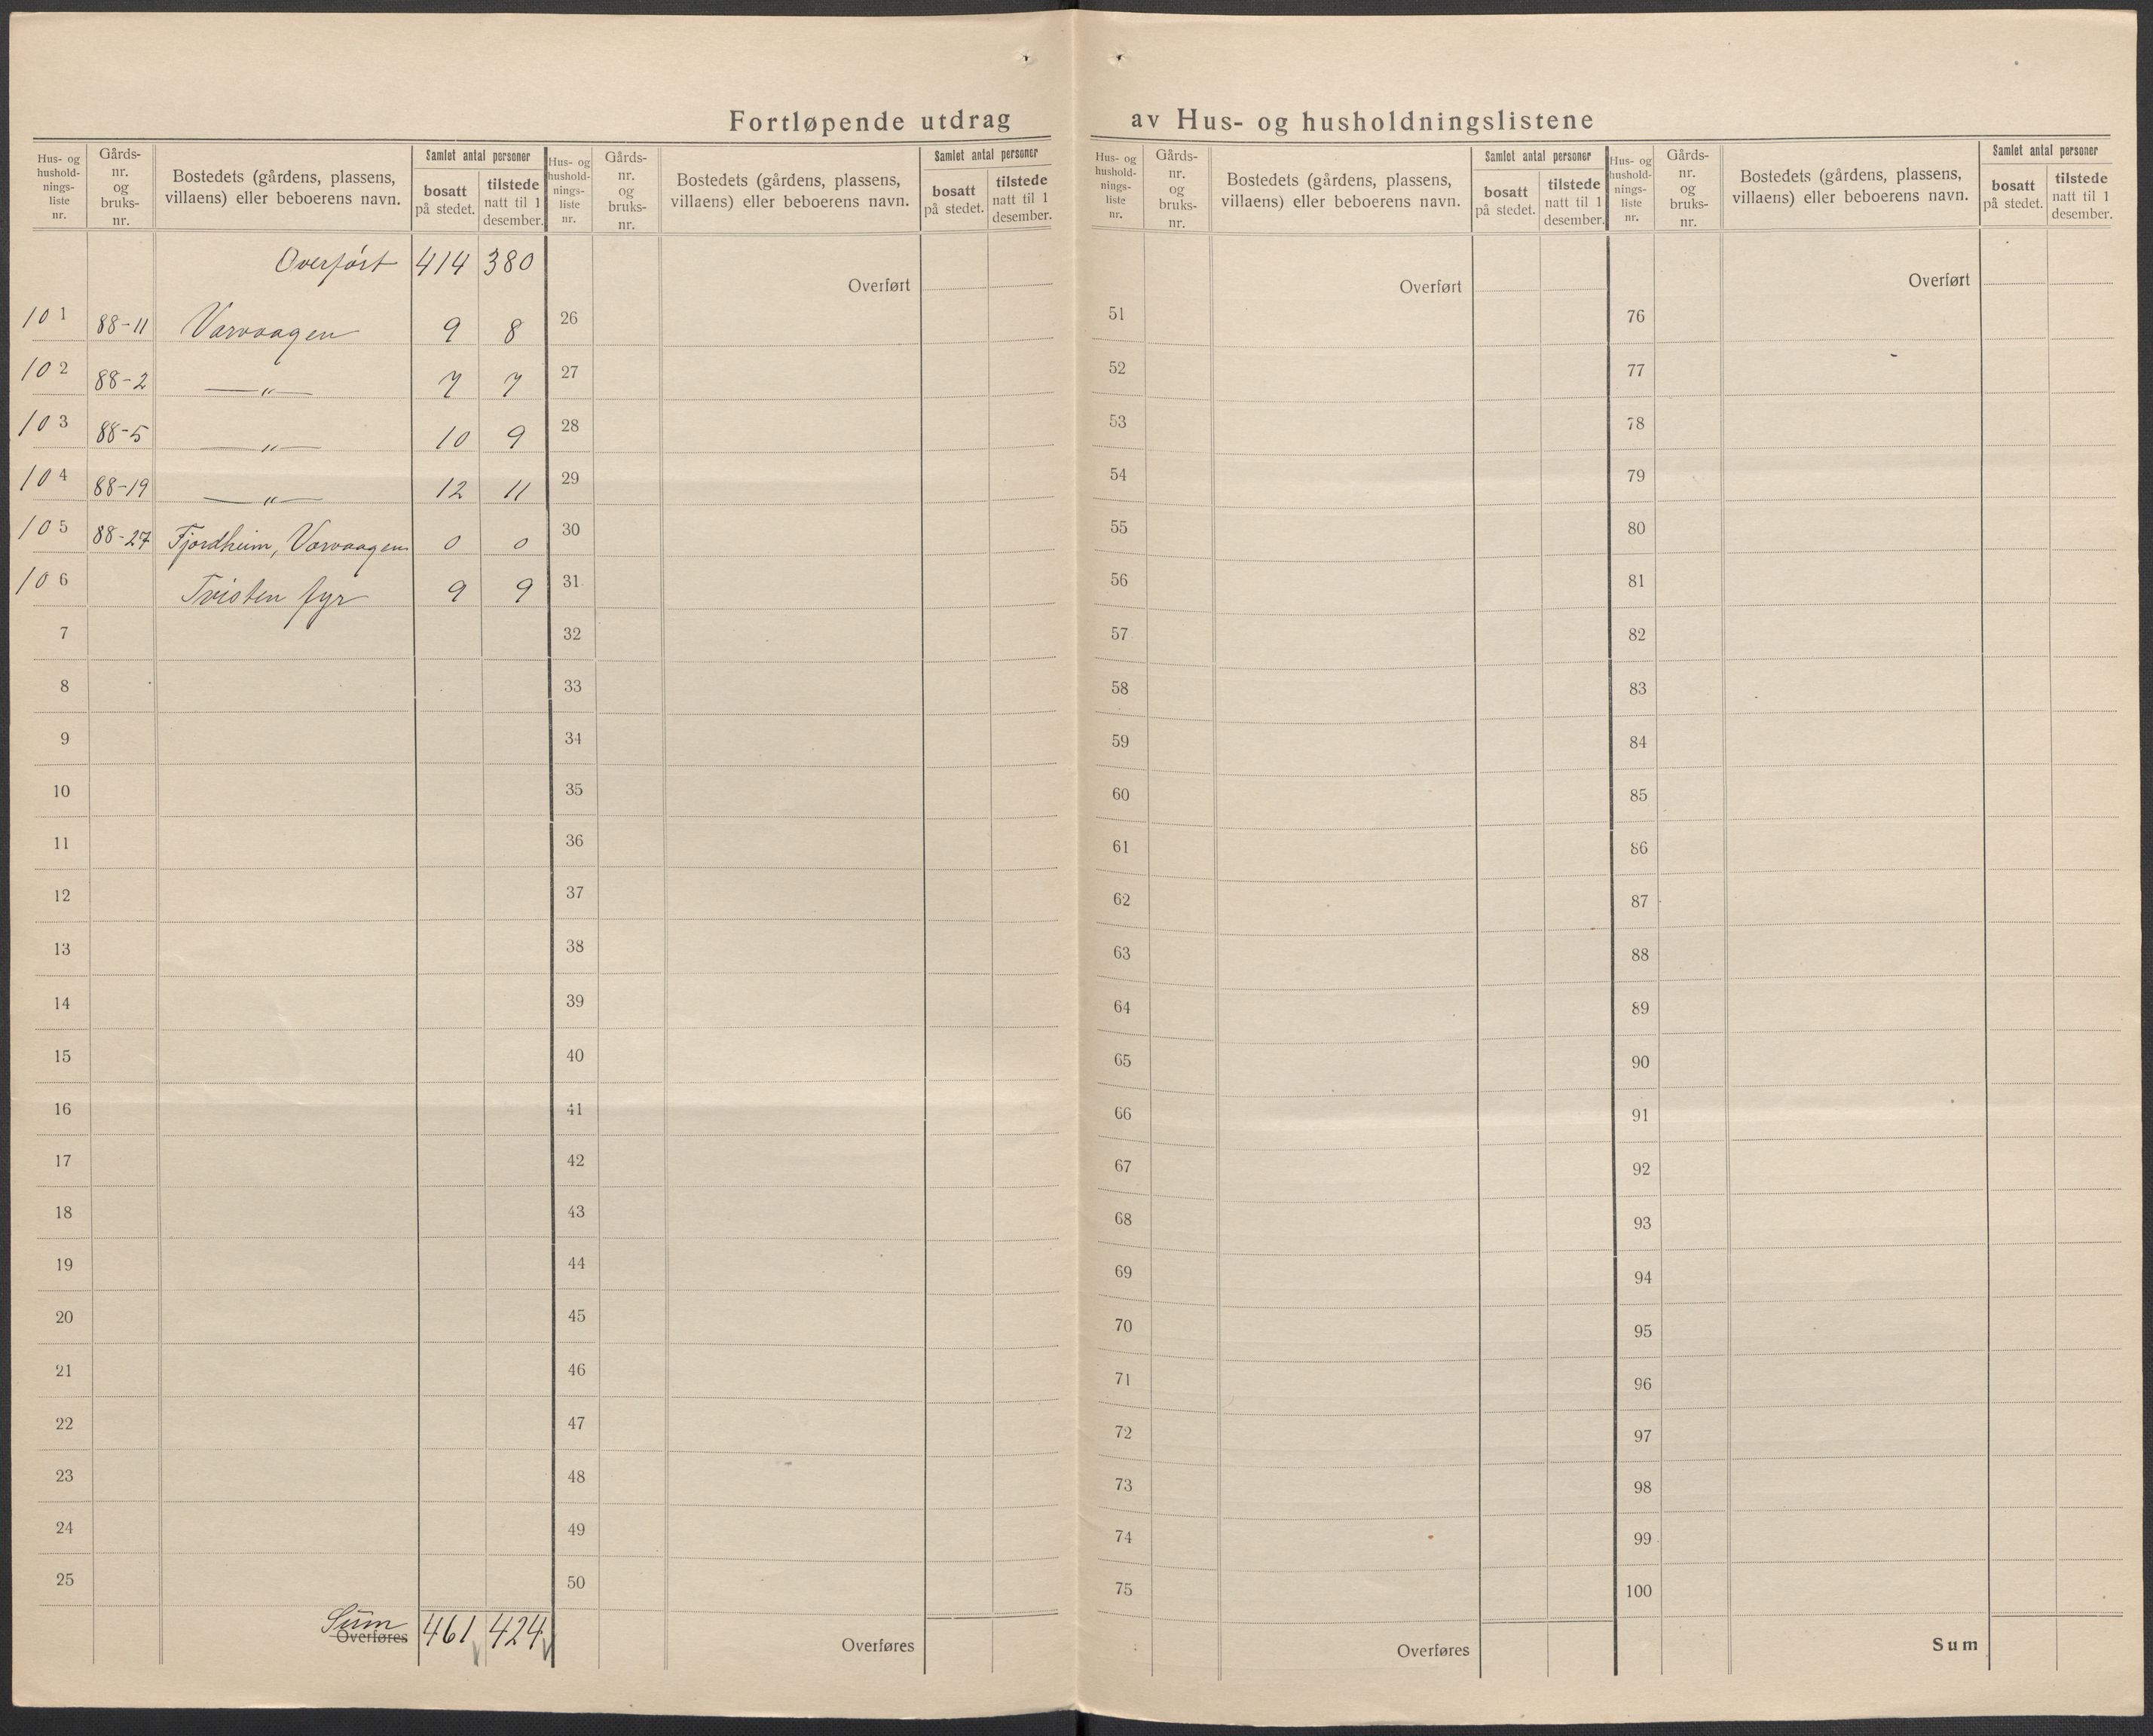 Fortløpende utdrag av Hus- og husholdningslistene
Hus- og hushold- nings- liste nr.
Gårds- nr. og bruks- nr.
Bostedets (gårdens, plassens, villaens) eller beboerens navn.
Samlet antal personer
bosatt på stedet.
tilstede natt til 1 desember.
Overført 414 380
101 88-11 Varvaagen 9 8
102 88-2 —"— 7 7
103 88-5 —"— 10 9
104 88-19 —"— 12 11
105 88-27 Fjordheim, Varvaagen 0 0
106 Tvisten fyr 9 9
7
8
9
10
11
12
13
14
15
16
17
18
19
20
21
22
23
24
25
Sum
Overføres 461 424
Hus- og hushold- nings- liste nr.
Gårds- nr. og bruks- nr.
Bostedets (gårdens, plassens, villaens) eller beboerens navn.
Samlet antal personer
bosatt på stedet.
tilstede natt til 1 desember.
Overført
26
27
28
29
30
31
32
33
34
35
36
37
38
39
40
41
42
43
44
45
46
47
48
49
50
Overføres
Hus- og hushold- nings- liste nr.
Gårds- nr. og bruks- nr.
Bostedets (gårdens, plassens, villaens) eller beboerens navn.
Samlet antal personer
bosatt på stedet.
tilstede natt til 1 desember.
Overført
51
52
53
54
55
56
57
58
59
60
61
62
63
64
65
66
67
68
69
70
71
72
73
74
75
Overføres
Hus- og hushold- nings- liste nr.
Gårds- nr. og bruks- nr.
Bostedets (gårdens, plassens, villaens) eller beboerens navn.
Samlet antal personer
bosatt på stedet.
tilstede natt til 1 desember.
Overført
76
77
78
79
80
81
82
83
84
85
86
87
88
89
90
91
92
93
94
95
96
97
98
99
100
Sum